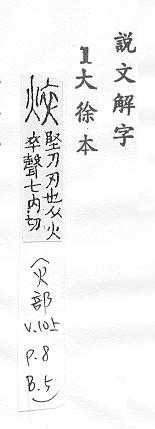 説文解字
1大徐本
焠
堅刀刃也从火
卒聲七内切
(火部
V.10上
P.8
B.5)